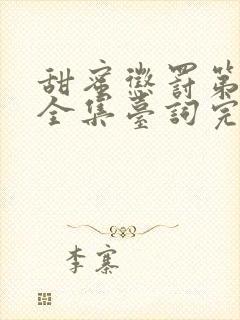 甜蜜懲罰第
全集臺詞完
李寨